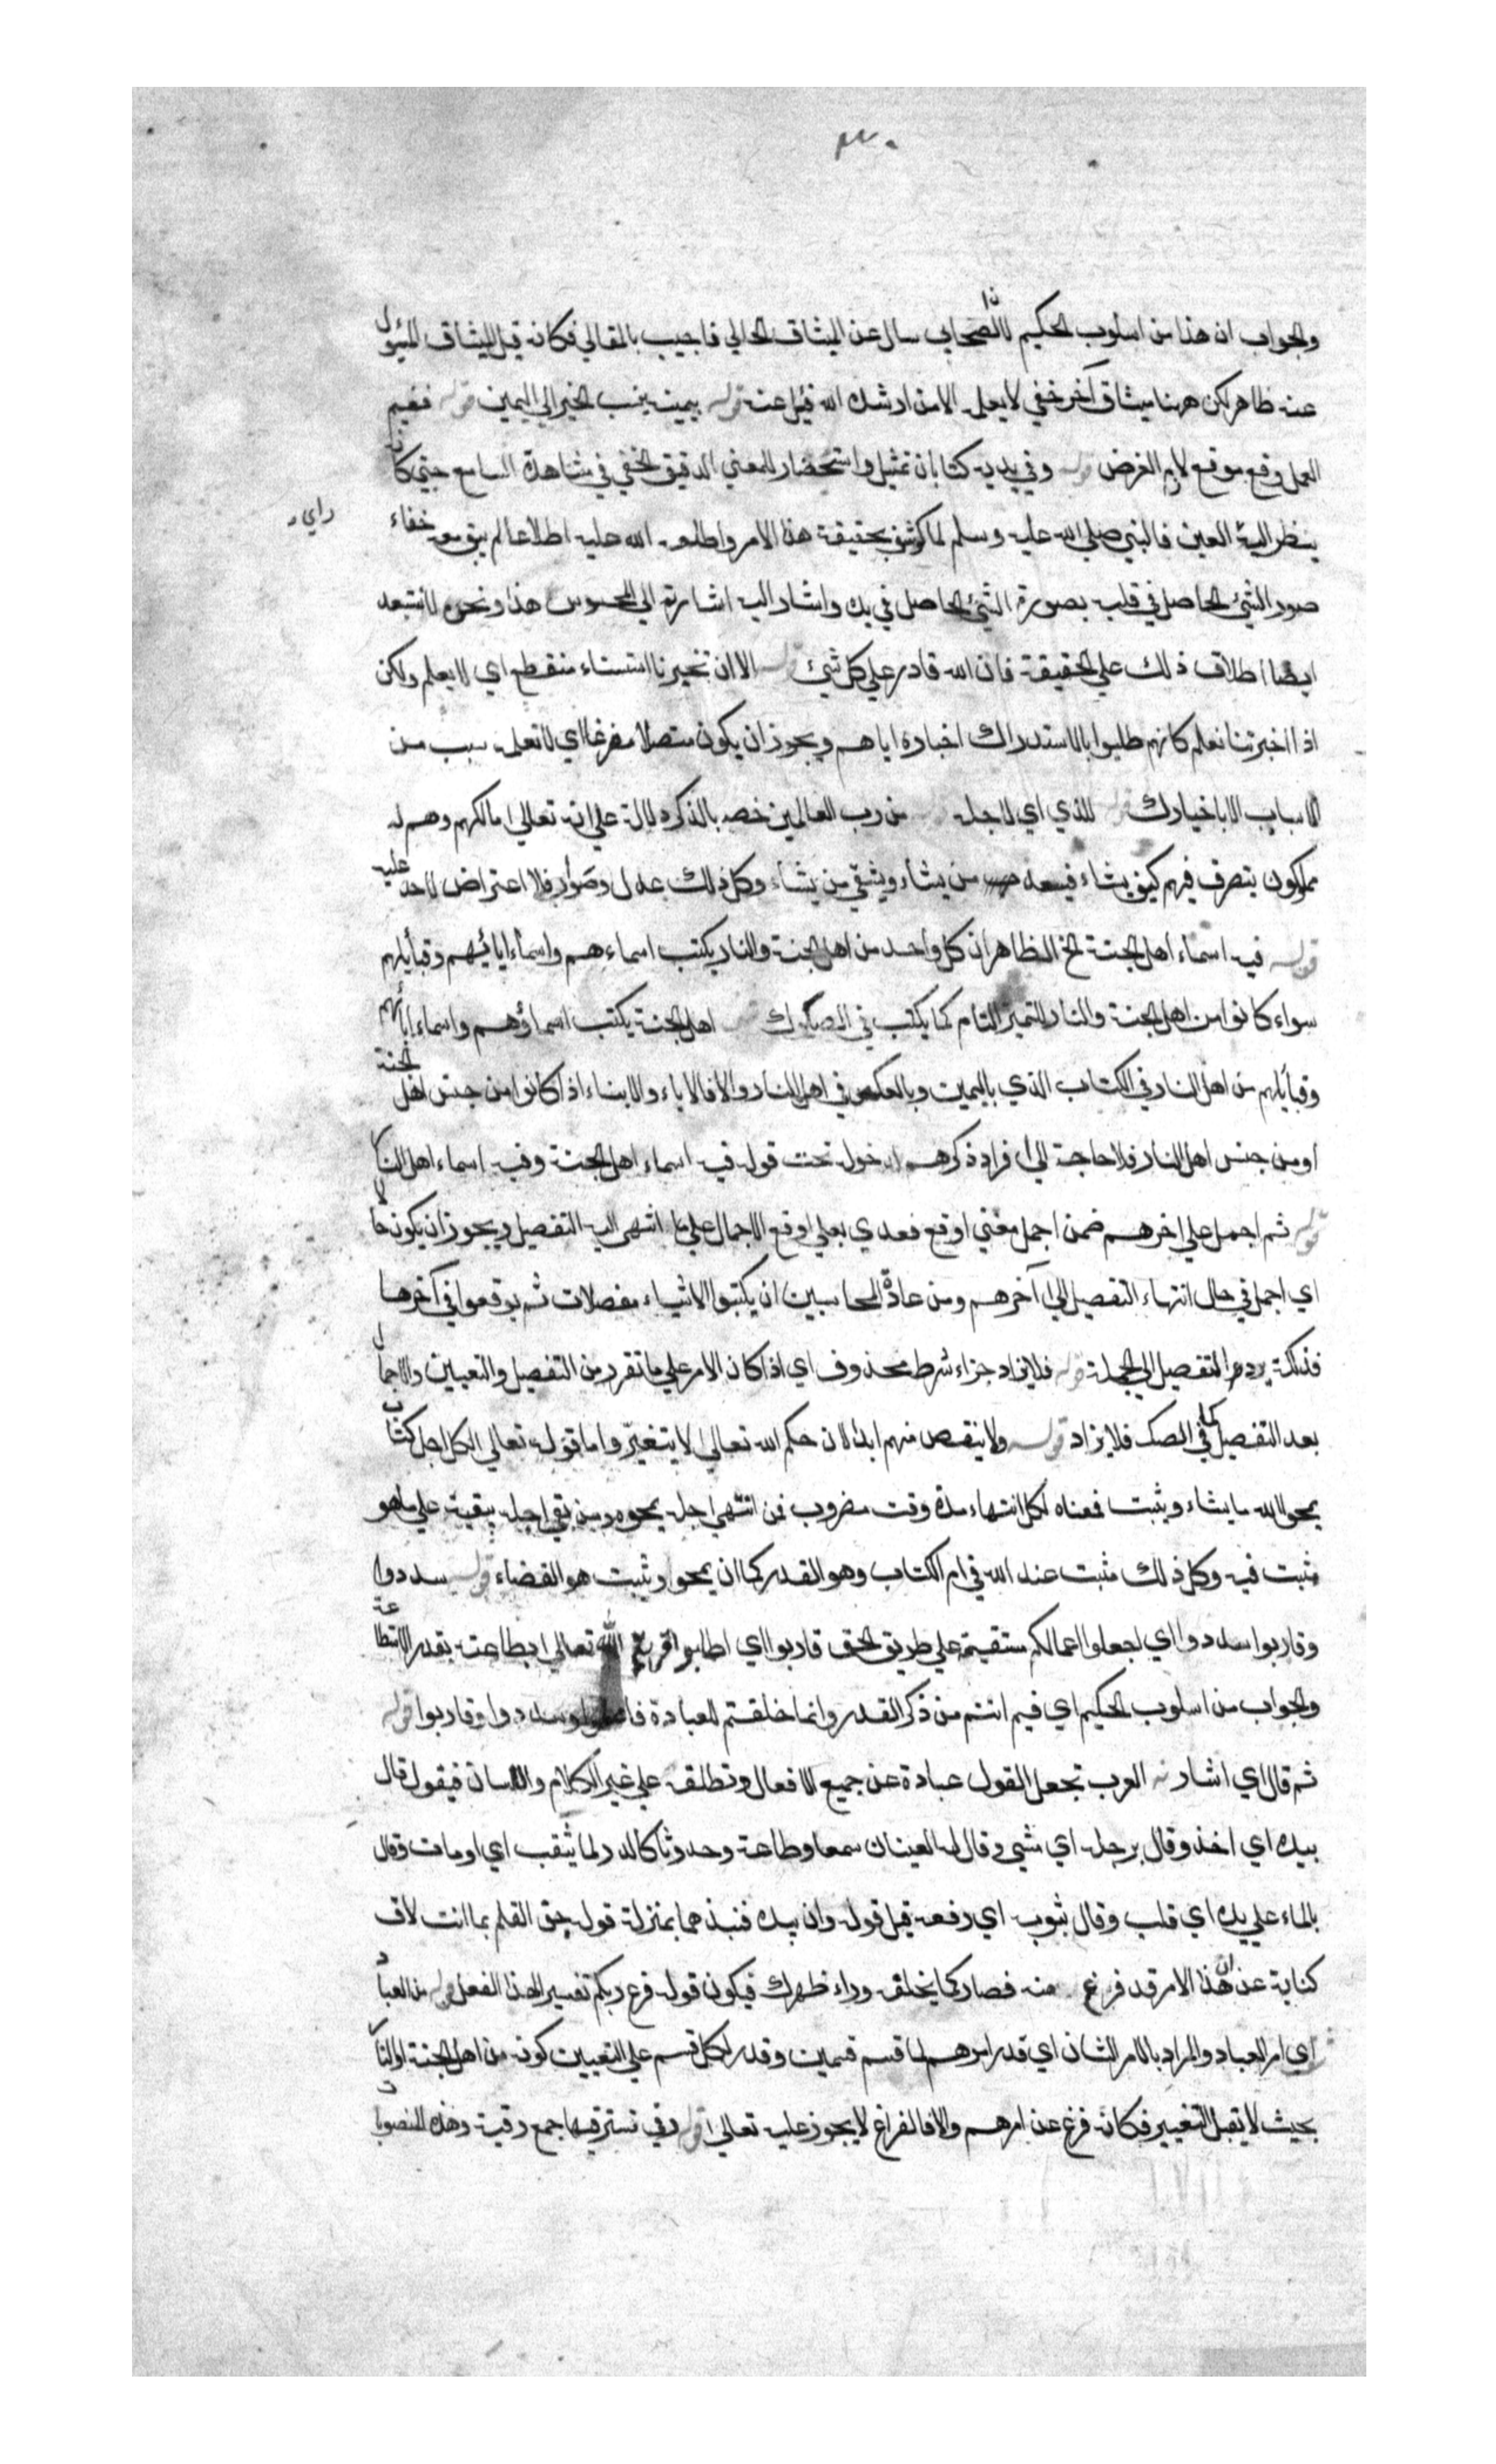 ٣٠
والجواب ان هذا من اسلوب الحكيم لان الصحابي سال عن الميثاق الحالي فاجيب بالمقالي فكانه قيل الميثاق المسئول
عنه ظاهر لكن ههنا ميثاق آخر خفي لا يعلمه الا من ارشده الله قيل عنه قوله بيمينه ينسب الخير الي اليمين قوله ففيم
العمل وقع موقع لام الغرض قوله وفي يديه كتابان تمثيل واستحضار للمعني الدقيق الخفي في مشاهدة السامع حتي كانه
ينظر اليه العين فالنبي صلي الله عليه وسلم لما كوشف بحقيقة هذا الامر واطلعه الله عليه اطلاعا لم يبق معه خفاء
صور الشئ الحاصل في قلبه بصورة الشئ الحاصل في يده واشار اليه اشارته الي المحسوس هذا ونحن لا نستبعد
ايضا اطلاق ذلك علي الحقيقة فان الله قادر علي كل شئ قوله الا ان تخبرنا استثناء منقطع اي لا يعلم ولكن
اذا اخبرتنا نعلم كانهم طلبوا بالاستدراك اخباره اياهم ويجوز ان يكون متصلا مفرغا اي لا نعلمه سبب من
الاسباب الا باخبارك قوله للذي اي لاجله من رب العالمين خصه بالذكر دلالة علي انه تعالي مالكهم وهم له
مملوكون يتصرف فيهم كيف يشاء فيسعد من يشاء ويشقي من يشاء وكل ذلك عدل وصواب فلا اعتراض لاحد عليه
قوله فيه اسماء اهل الجنة الخ الظاهر ان كل واحد من اهل الجنة والنار يكتب اسماءهم واسماء ابائهم وقبايلهم
سواء كانوا من اهل الجنة والنار للتميز التام كما يكتب في الصكوك اهل الجنة يكتب اسماؤهم واسماء ابائهم
وقبايلهم من اهل النار في الكتاب الذي باليمين وبالعكس في اهل النار والا فالاباء والابناء اذا كانوا من جنس اهل الجنة
او من جنس اهل النار فلا حاجة الي افراد ذكرهم لدخوله تحت قوله فيه اسماء اهل الجنة وفيه اسماء اهل النار
قوله ثم اجمل علي اخرهم ضمن اجمل معني اوقع فعدي بعلي اوقع الاجمال علي ما انتهي اليه التفصيل ويجوز ان يكون حالا
اي اجمل في حال انتهاء التفصيل الي آخرهم ومن عادة المحاسبين ان يكتبوا الاشياء مفصلات ثم يوقعوا في آخرها
فذلكة يردها التفصيل الي الجملة قوله فلا يزاد جزاء شرط محذوف اي اذا كان الامر علي ما تقرر من التفصيل والتعيين والاجمال
بعد التفصيل كما في الصك فلا يزاد قوله ولا ينقص منهم ابدا لان حكم الله تعالي لا يتغير واما قوله تعالي لكل اجل كتاب
يمحو الله ما يشاء ويثبت فمعناه لكل انتهاء مدة وقت مضروب فمن انتهي اجله يمحوه ومن بقي اجله يبقيه علي ما هو
مثبت فيه وكل ذلك مثبت عند الله في ام الكتاب وهو القدر كما ان يمحو ويثبت هو القضاء قوله سددوا
وقاربوا سددوا اي اجعلوا اعمالكم مستقيمة علي طريق الحق قاربوا اي اطلبوا قربة الله تعالي بطاعته بقدر الاستطاعة
والجواب من اسلوب الحكيم اي فيم انتم من ذكر القدر وانما خلقتم للعبادة فاعملوا وسددوا وقاربوا قوله
ثم قال اي اشار العرب تجعل القول عبارة عن جميع الافعال وتطلقه علي غير الكلام واللسان فيقول قال
بيده اي اخذ وقال برجله اي مشي وقال له العينان سمعا وطاعة وحدرتا كالدر لما يثقب اي اومات وقال
بالماء علي يده اي قلب وقال بثوبه اي رفعه قيل قوله وان بيده فنبذهما بمنزلة قوله جف القلم بما انت لاق
كناية عن ان هذا الامر قد فرغ منه فصار كما يخلقه وراء ظهرك فيكون قوله فرغ ربكم تفسيرا لهذا الفعل قوله من العباد
اي امر العباد والمراد بالامر الشان اي قدر امرهم لما قسم قسمين وقدر لكل قسم علي التعيين كونه من اهل الجنة او النار
بحيث لا تقبل التغيير فكانه فرغ عن امرهم والا فالفراغ لا يجوز عليه تعالي قوله رقي نسترقيها جمع رقية وهذه المنصوبات